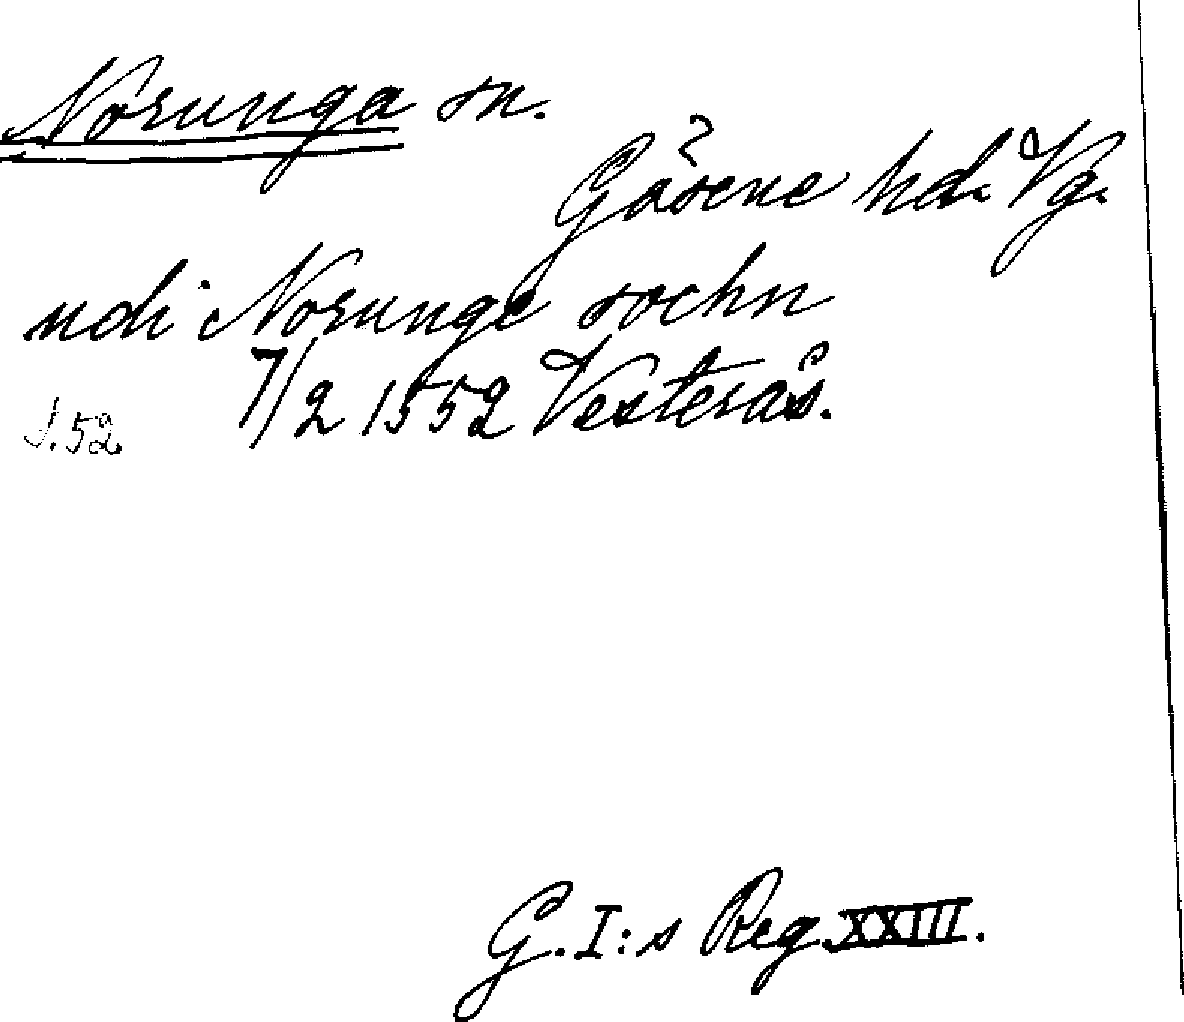 Norunga sn.
Gäsene hd. Vg.
udi Norunge sochn
7/2 1552 Vesterås.
s. 52
G. I:s Reg. XXIII.